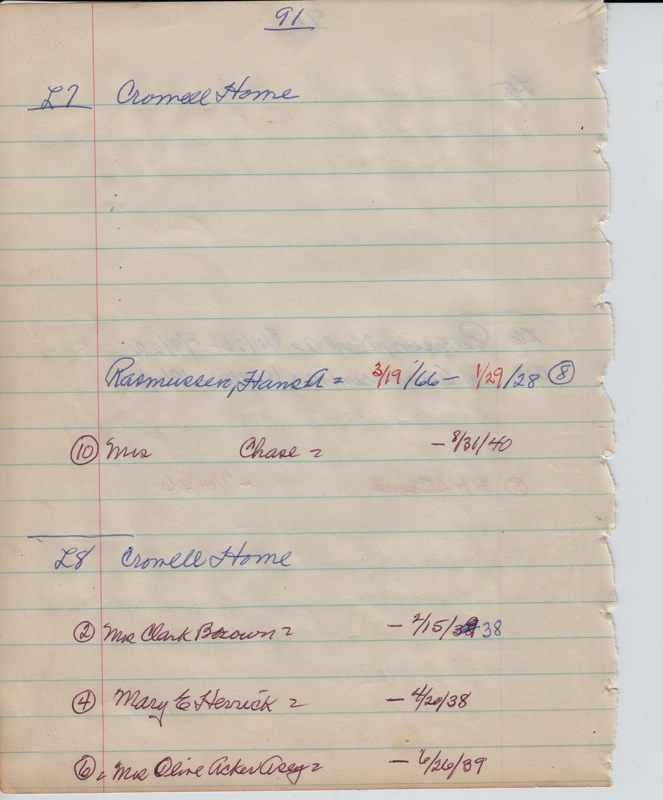 91
L7 Crowell Home
Rasmussen, Hans A = 3/19/66 - 1/29/28 ⑧
⑩ Mrs Chase = - 8/31/40
L8 Crowell Home
② Mrs Clark Brown = - 2/15/38
④ Mary E Herrick = - 4/20/38
⑥ = Mrs Olive Acker = - 6/26/39